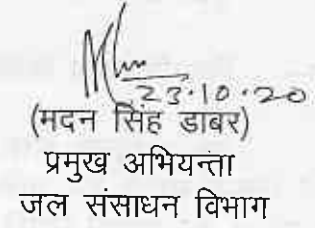 23.10.20
(मदन सिंह डाबर)
प्रमुख अभियन्ता
जल संसाधन विभाग